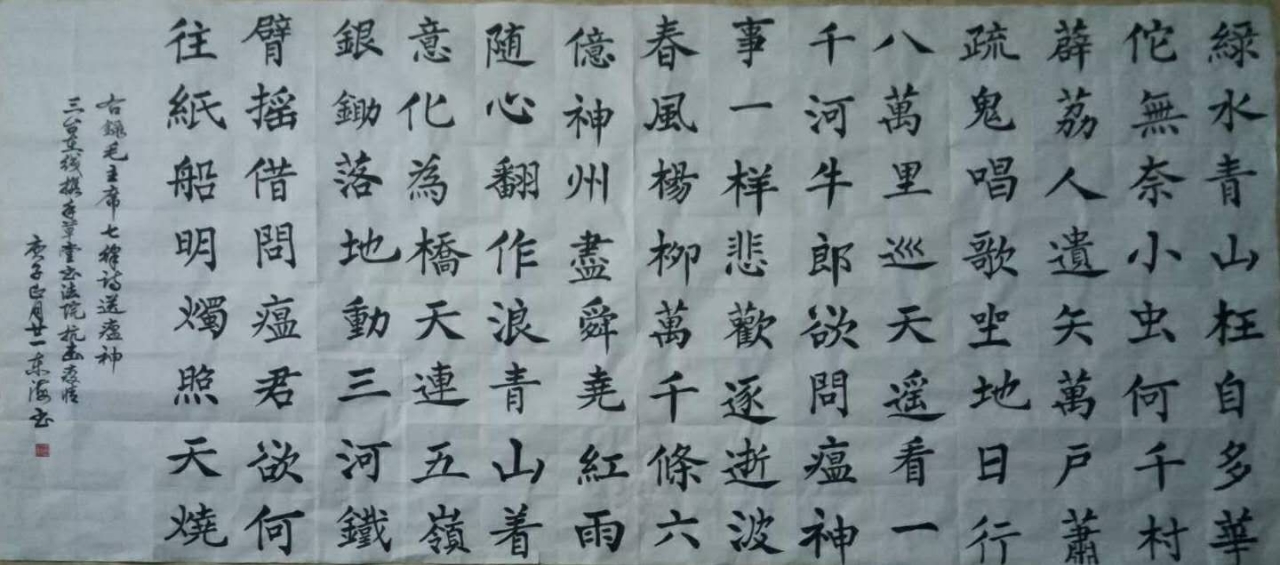 綠水青山枉自多華
佗無奈小虫何千村
薜荔人遺矢萬戶蕭
疏鬼唱歌坐地日行
八萬里巡天遥看一
千河牛郎欲問瘟神
事一样悲歡逐逝波
春風楊柳萬千條六
億神州盡舜堯紅雨
随心翻作浪青山着
意化為橋天連五嶺
銀鋤落地動三河鐵
臂摇借問瘟君欲何
往紙船明燭照天燒
右錄毛主席七律詩送瘟神
三台草堂書法院抗
庚子正月廿一東海书